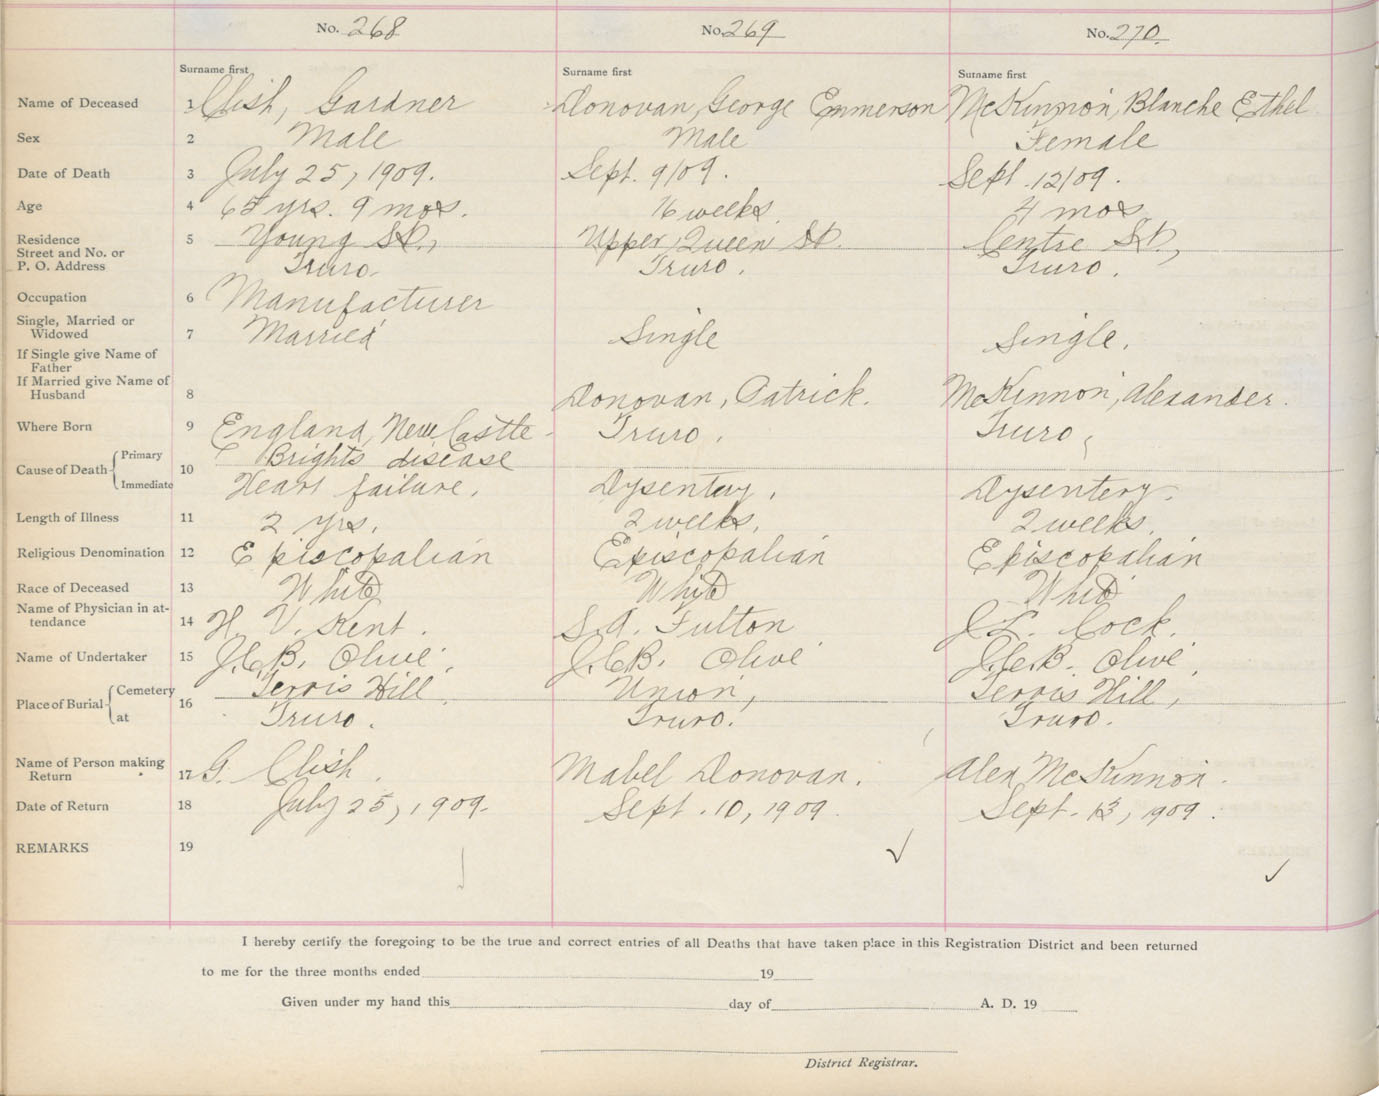 No. 268 No. 269 No. 270.
Surname first Surname first Surname first
Name of Deceased 1 Clish, Gardner Donovan, George Emmerson McKinnon, Blanche Ethel
Sex 2 Male Male Female
Date of Death 3 July 25, 1909. Sept. 9/09. Sept. 12/09.
Age 4 yrs. 9 mos. 16 weeks 4 mos
Residence 5 Young St., Upper Queen St. Centre St.,
Street and No. or
P. O. Address Truro. Truro. Truro.
Occupation 6 Manufacturer
Single, Married or
Widowed 7 Married Single Single.
If Single give Name of
Father
If Married give Name of
Husband 8 Donovan, Patrick. McKinnon, Alexander.
Where Born 9 England, New Castle Truro. Truro
Primary Brights disease
Cause of Death 10
Immediate Heart failure. Dysentery. Dysentery.
Length of Illness 11 2 yrs. 2 weeks. 2 weeks.
Religious Denomination 12 Episcopalian Episcopalian Episcopalian
Race of Deceased 13 White White White
Name of Physician in at-
tendance 14 H. V. Kent. S. A. Fulton J. L. Cock.
Name of Undertaker 15 J. C. B. Olive. J. C. B. Olive J. C. B. Olive.
Cemetery Terris Hill Union, Terris Hill,
Place of Burial 16
at Truro. Truro. Truro.
Name of Person making
Return 17 G. Clish. Mabel Donovan. Alex McKinnon.
Date of Return 18 July 25, 1909. Sept. 10, 1909. Sept. 13, 1909.
REMARKS 19
I hereby certify the foregoing to be the true and correct entries of all Deaths that have taken place in this Registration District and been returned
to me for the three months ended 19
Given under my hand this day of A. D. 19
District Registrar.